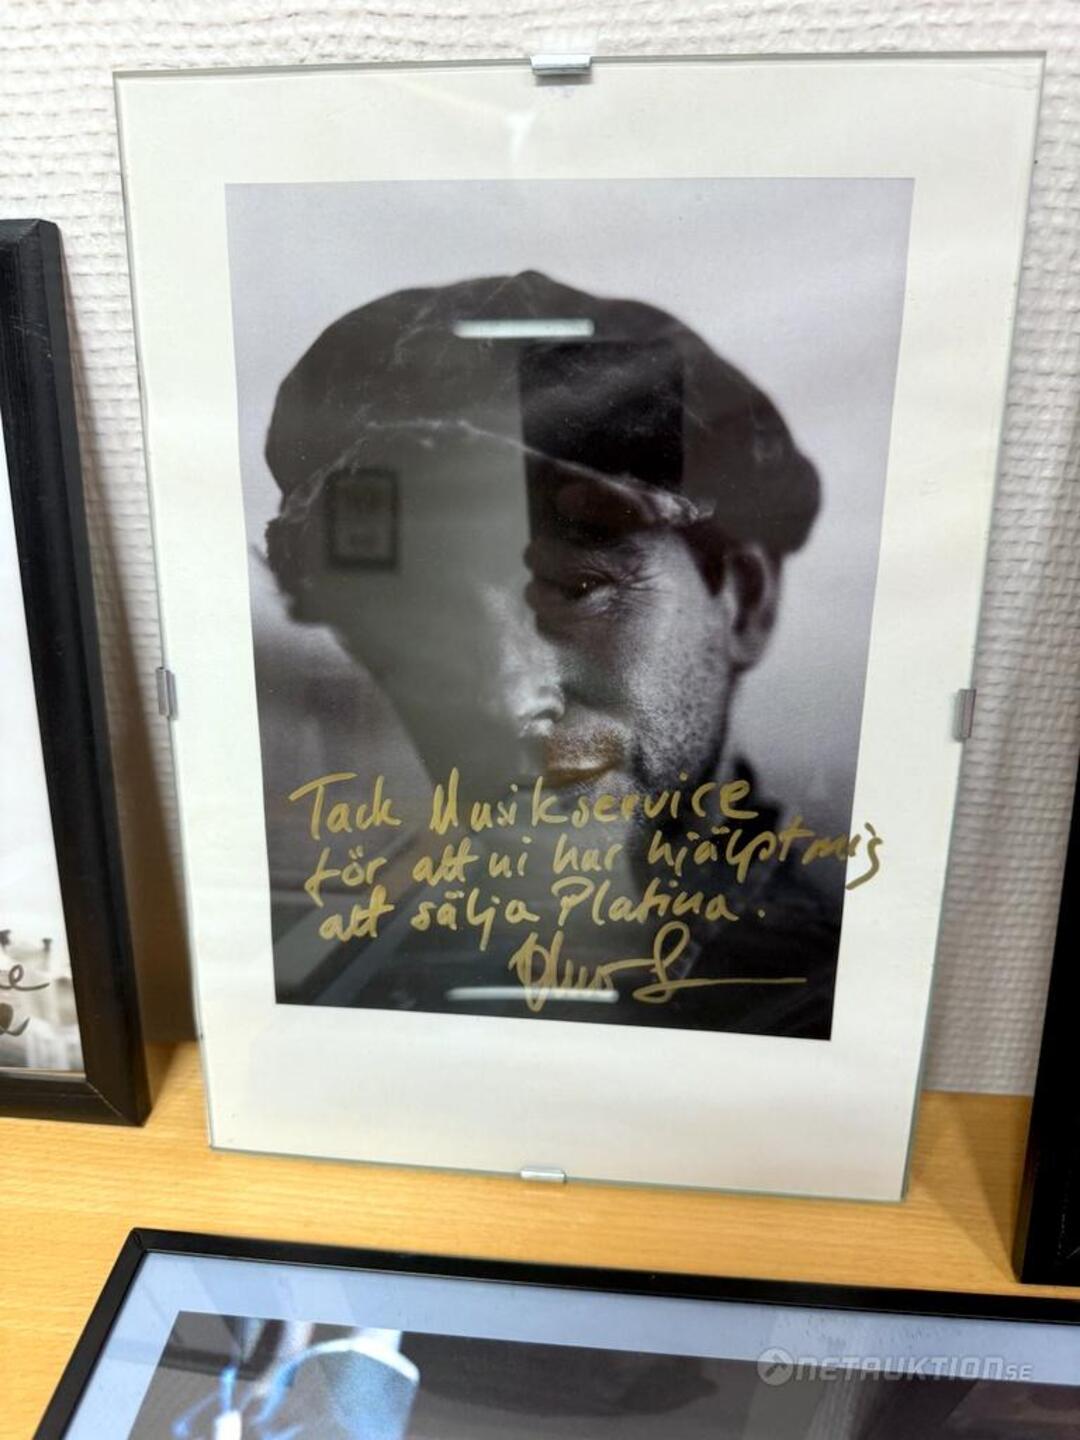 Tack Musikservice
för att ni har hjälpt mig
att sälja Platina.
NETAUKTION.SE